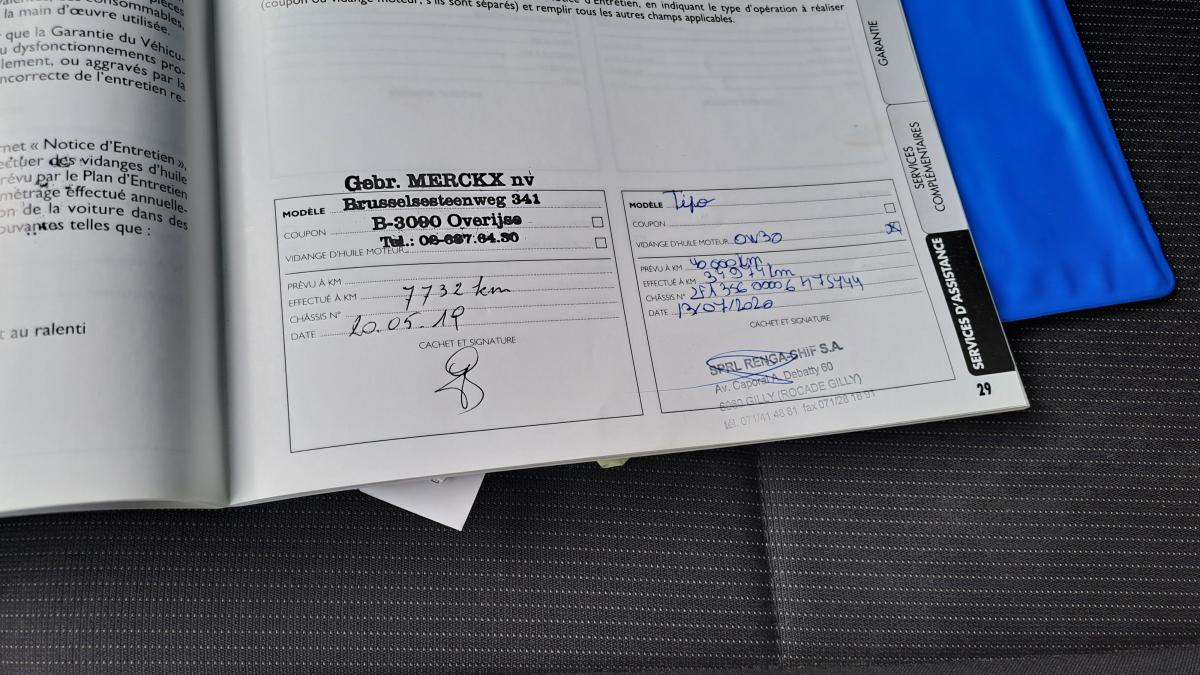 pièces
consommables,
la main d'œuvre utilisée.
que la Garantie du Véhicu-
u dysfonctionnements pro-
lement, ou aggravés par la
ncorrecte de l'entretien re-
net « Notice d'Entretien »,
ectuer des vidanges d'huile
révu par le Plan d'Entretien
métrage effectué annuelle-
on de la voiture dans des
ouvantes telles que :
t au ralenti
d'Entretien, en indiquant le type d'opération à réaliser
(coupon ou vidange moteur, s'ils sont séparés) et remplir tous les autres champs applicables.
Gebr. MERCKX nv
MODÈLE Brusselsesteenweg 341
COUPON B-3090 Overijse
Tel.: 02-687.64.30
VIDANGE D'HUILE MOTEUR
PRÉVU À KM
EFFECTUÉ À KM 7732 km
CHÂSSIS N°
DATE 20.05.19
CACHET ET SIGNATURE
MODÈLE Tipo
COUPON
VIDANGE D'HUILE MOTEUR 0W30
PRÉVU À KM 40 000 km
EFFECTUÉ À KM 34974 km
CHÂSSIS N°
DATE 13/07/2020
CACHET ET SIGNATURE
SPRL RENGA-SHIF S.A.
Av. Caporal A. Debatty 60
6060 GILLY (ROCADE GILLY)
tél. 071/41 48 81 fax 071/28 18 91
GARANTIE
SERVICES
COMPLÉMENTAIRES
SERVICES D'ASSISTANCE
29